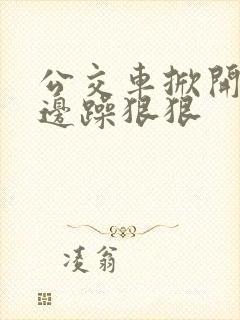 公交车掀開
邊躁狠狠
凌翁